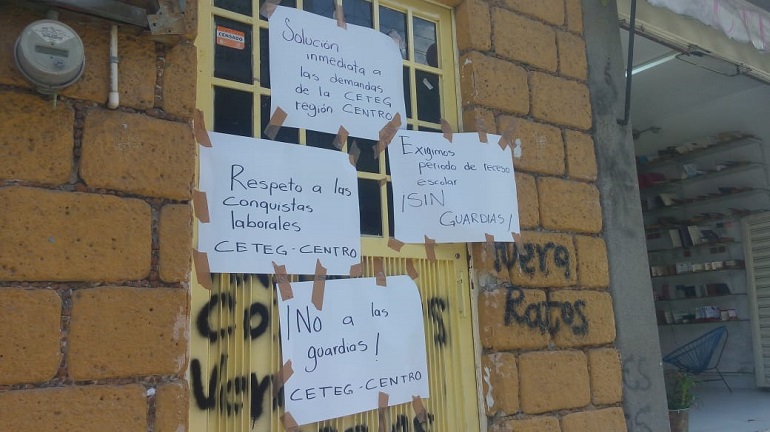 CENSADO
Solución
inmediata a
las demandas
de la CETEG
región CENTRO
Respeto a las
conquistas
laborales
CETEG-CENTRO
Exigimos
periodo de receso
escolar
¡SIN
GUARDIAS!
¡No a las
guardias!
CETEG-CENTRO
wera
Ratos